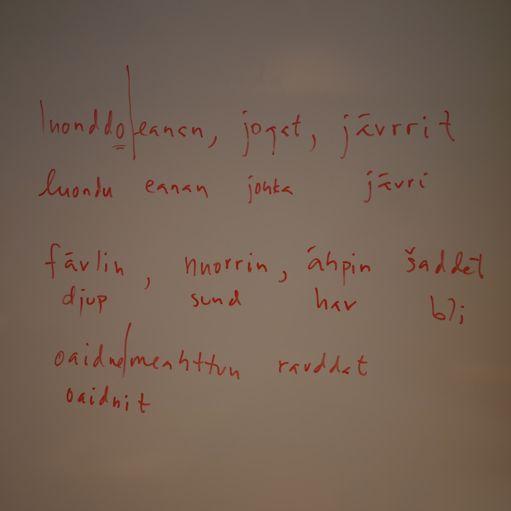 luonddo|eanan, jogat, jávrrit
luondu eanan johka jávri
fávlin, nuorrin, áhpin šaddet
djup sund hav bli
oaidne/meahttun ravddat
oaidnit